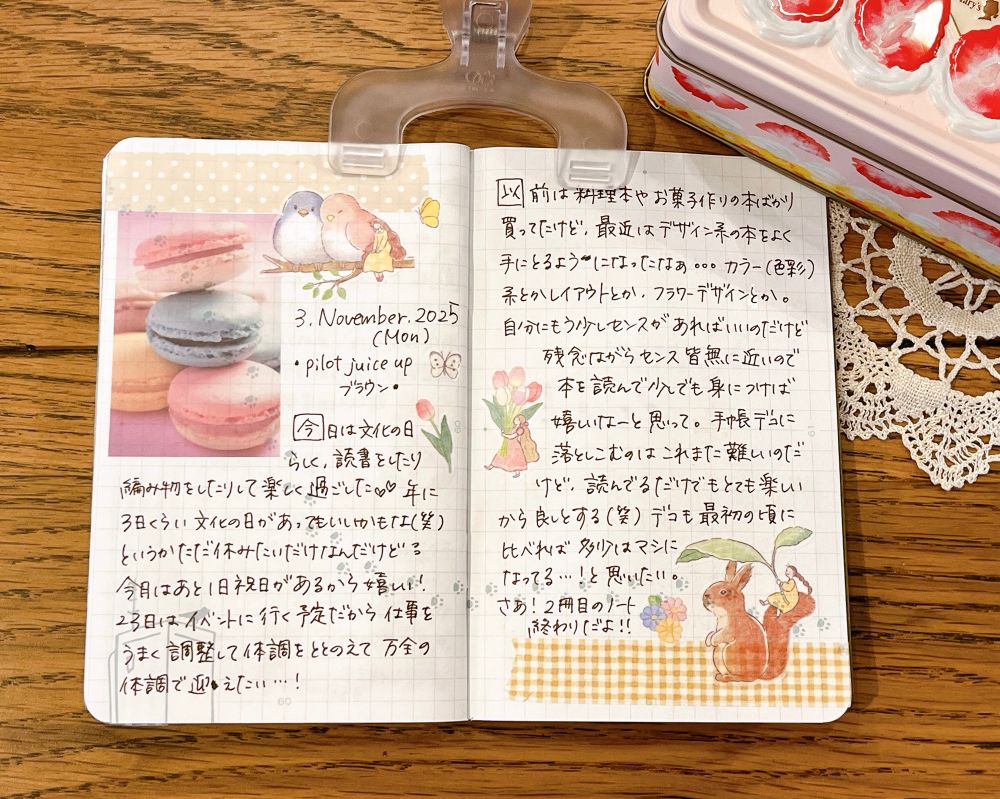 3. November. 2025
(Mon)
・pilot juice up
ブラウン・
今日は文化の日
らしく、読書をしたり
編み物をしたりして楽しく過ごした♡♡ 年に
3日くらい文化の日があってもいいかもな(笑)
というかただ休みたいだけなんだけどろ
今月はあと1日祝日があるから嬉しい!
23日はイベントに行く予定だから仕事を
うまく調整して体調をととのえて万全の
体調で迎えたい…!
60
以前は料理本やお菓子作りの本ばかり
買ってたけど、最近はデザイン系の本をよく
手にとるようになったなぁ… カラー(色彩)
系とかレイアウトとか、フラワーデザインとか。
自分にもう少しセンスがあればいいのだけど
残念ながらセンス皆無に近いので
本を読んで少しでも身につけば
嬉しいなーと思って。手帳デコに
落としこむのはこれまた難しいのだ
けど、読んでるだけでもとても楽しい
から良しとする(笑) デコも最初の頃に
比べれば多少はマシに
なってる…!と思いたい。
さあ!2冊目のノート
終わりだよ!!
61